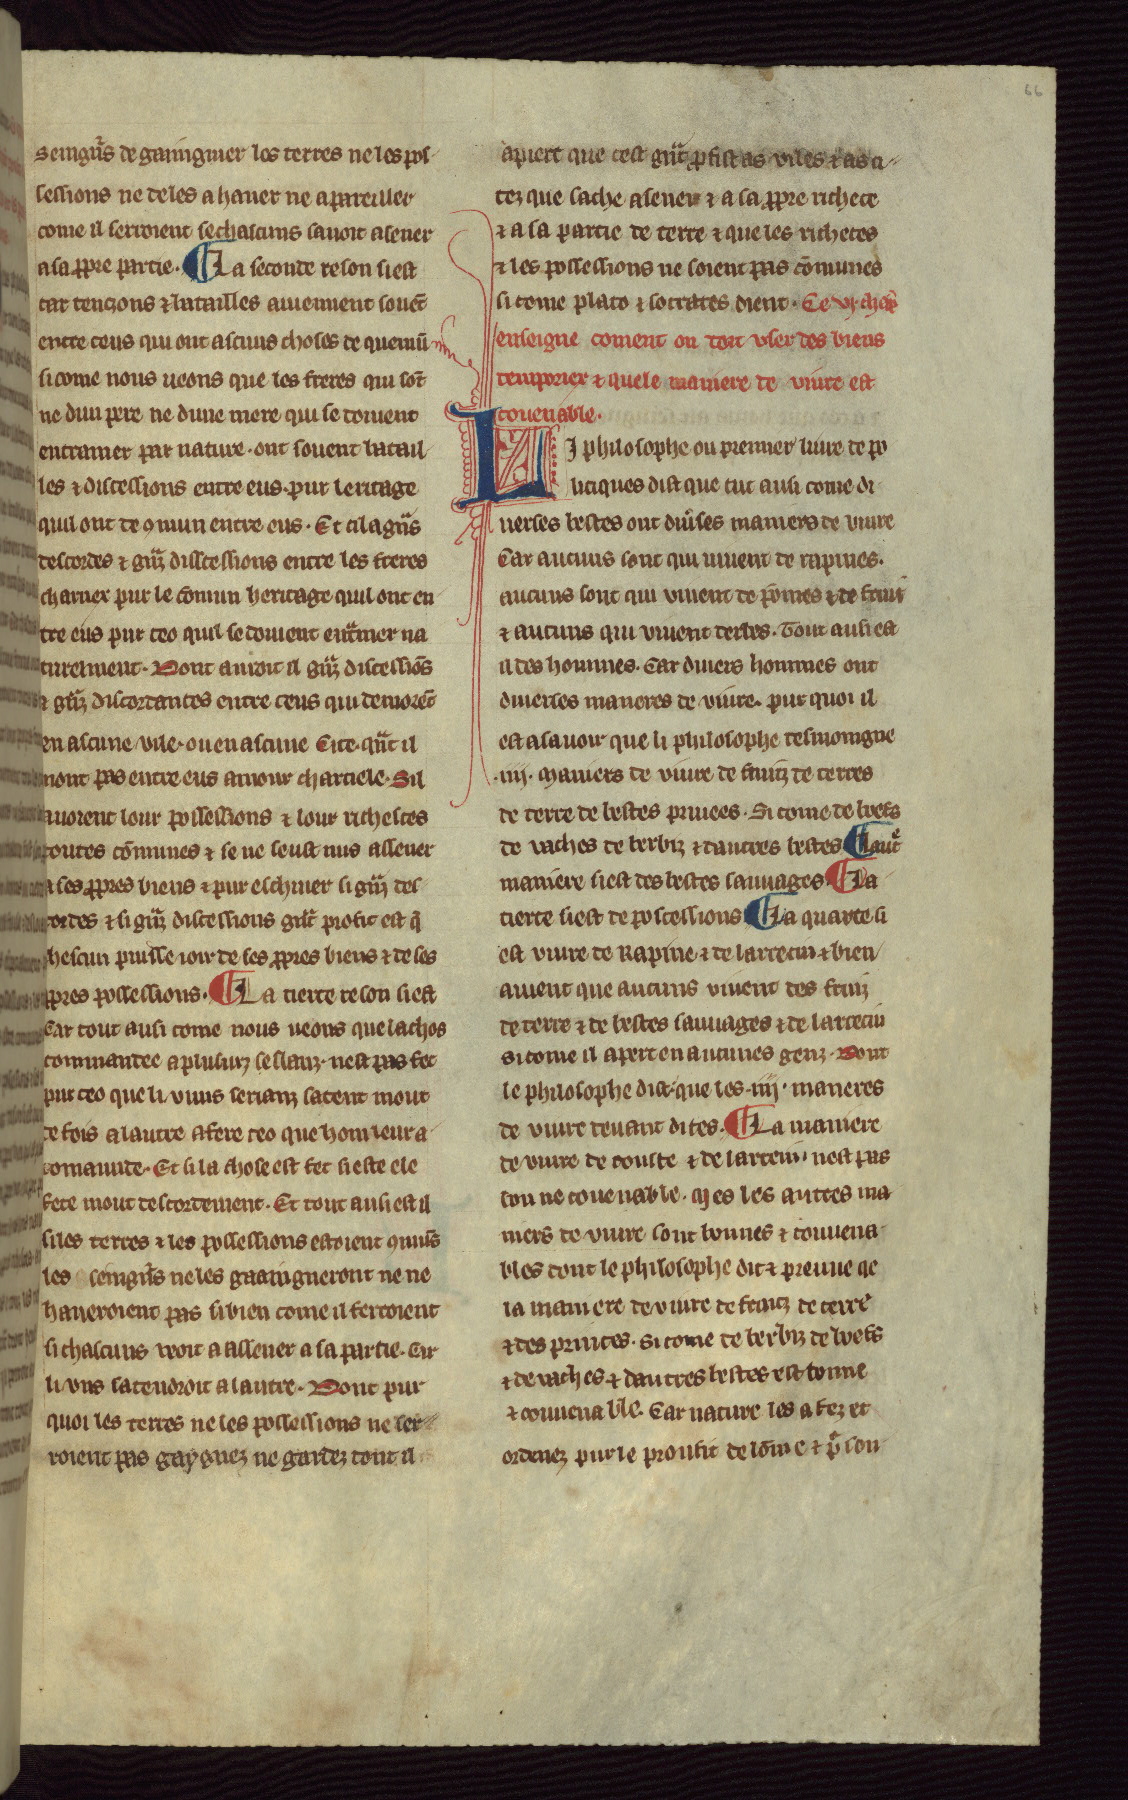 66
seingñrs de gaaingnier les terres ne les pos-
sessions ne teles a hauer ne apareiller
come il serroient se chascuns sauoit asener
a sa ppre partie. ¶ La seconde reson si est
car tencons ⁊ batailles auiennent souēt
entre ceus qui ont ascuns choses de quemū
si come nous ueons que les freres qui sōt
ne dun pere ne dune mere qui se doiuent
entramer par nature. ont souent batail
les ⁊ discessions entre eus. pur leritage
quil ont de 9mun entre eus. Et cil a gñs
descordes ⁊ gñz disscessions entre les freres
charnex pur le cōmun heritage quil ont en
tre eus pur ceo quil se doiuent entͣmer na
turelment. Dont auroit il gñz discessiōs
⁊ gñz discordances entre ceus qui demorēt
en ascune vile. ou en ascune Cite. qñt il
nont pas entre eus amour charnele. Sil
auorent lour possessions ⁊ lour richesces
toutes cōmunes ⁊ se ne seust nus assener
a ses ppres biens ⁊ pur eschiuer si gñz des
cordes ⁊ si gñz discessions gñt profit est q̄
chescun puisse ioir de ses ppres biens ⁊ de ses
ppres possessions. ¶ La tierce reson si est
Car tout ausi come nous ueons que la chos
commandee a plusurz seriauz. nest pas fet
pur ceo que li vuns serianz satent mout
de fois a lautre a fere ceo que hom leur a
comande. Et si la chose est fet si este ele
fete mout descordement. Et tout ausi est il
si les terres ⁊ les possessions estoient 9munes
les seingñrs ne les gaaingneront ne ne
haueroient pas si bien come il ferroient
si chascuns uoit a assener a sa partie. Car
li vns satendroit a lautre. Dont pur
quoi les terres ne les possessions ne ser
roient pas gaygnez ne gardez dont il
apiert que cest gñt pfist as viles ⁊ as ci-
tez que sache asener ⁊ a sa ppre richece
⁊ a sa partie de terre ⁊ que les richeces
⁊ les possessions ne soient pas cōmunes
si come plato ⁊ socrates dient. Ce vj. chap̄
enseigne coment on doit vser des biens
temporier ⁊ quele maniere de viure est
couenable.
LI philosophe ou premier liure de po
litiques dist que tut ausi come di
uerses bestes ont diuses maniers de viure
Car aucuns sont qui uiuent de rapines.
aucuns sont qui viuent de pomes ⁊ de fruit
⁊ aucuns qui viuent terres. Tout ausi est
il des hommes. Car diuers hommes ont
diuerses maneres de viure. pur quoi il
est a sauoir que li philosophe tesmoingne
.iiij. maniers de viure de fruiz de terres
de terre de bestes priuees. Si come de boefs
de vaches de berbiz ⁊ dautres bestes ¶ Laut͛
maniere si est des bestes sauuages. ¶ La
tierce si est de poscessions ¶ La quarte si
est viure de Rapine ⁊ de larrecin ⁊ bien
auient que aucuns viuent des fruiz
de terre ⁊ de bestes sauuages ⁊ de larrecin
si come il apert en aucunes genz. Dont
le philosophe dist. que les .iiij. maneres
de viure deuant dites. ¶ La maniere
de viure de touste ⁊ de larrecin. nest pas
bon ne couenable. Mes les autres ma
niers de viure sont bonnes ⁊ couuena
bles dont le philosophe dit ⁊ preuue qe
la maniere de viure de fruiz de terre
⁊ des priuees. si come de berbiz de boefs
⁊ de vaches ⁊ dautres bestes est bonne
⁊ couuenable. Car nature les a fez et
ordenez pur le proufit de lōme ⁊ p̄ son